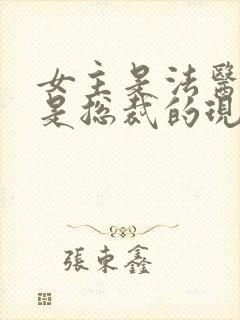 女主是法醫
是总裁的現
張東鑫